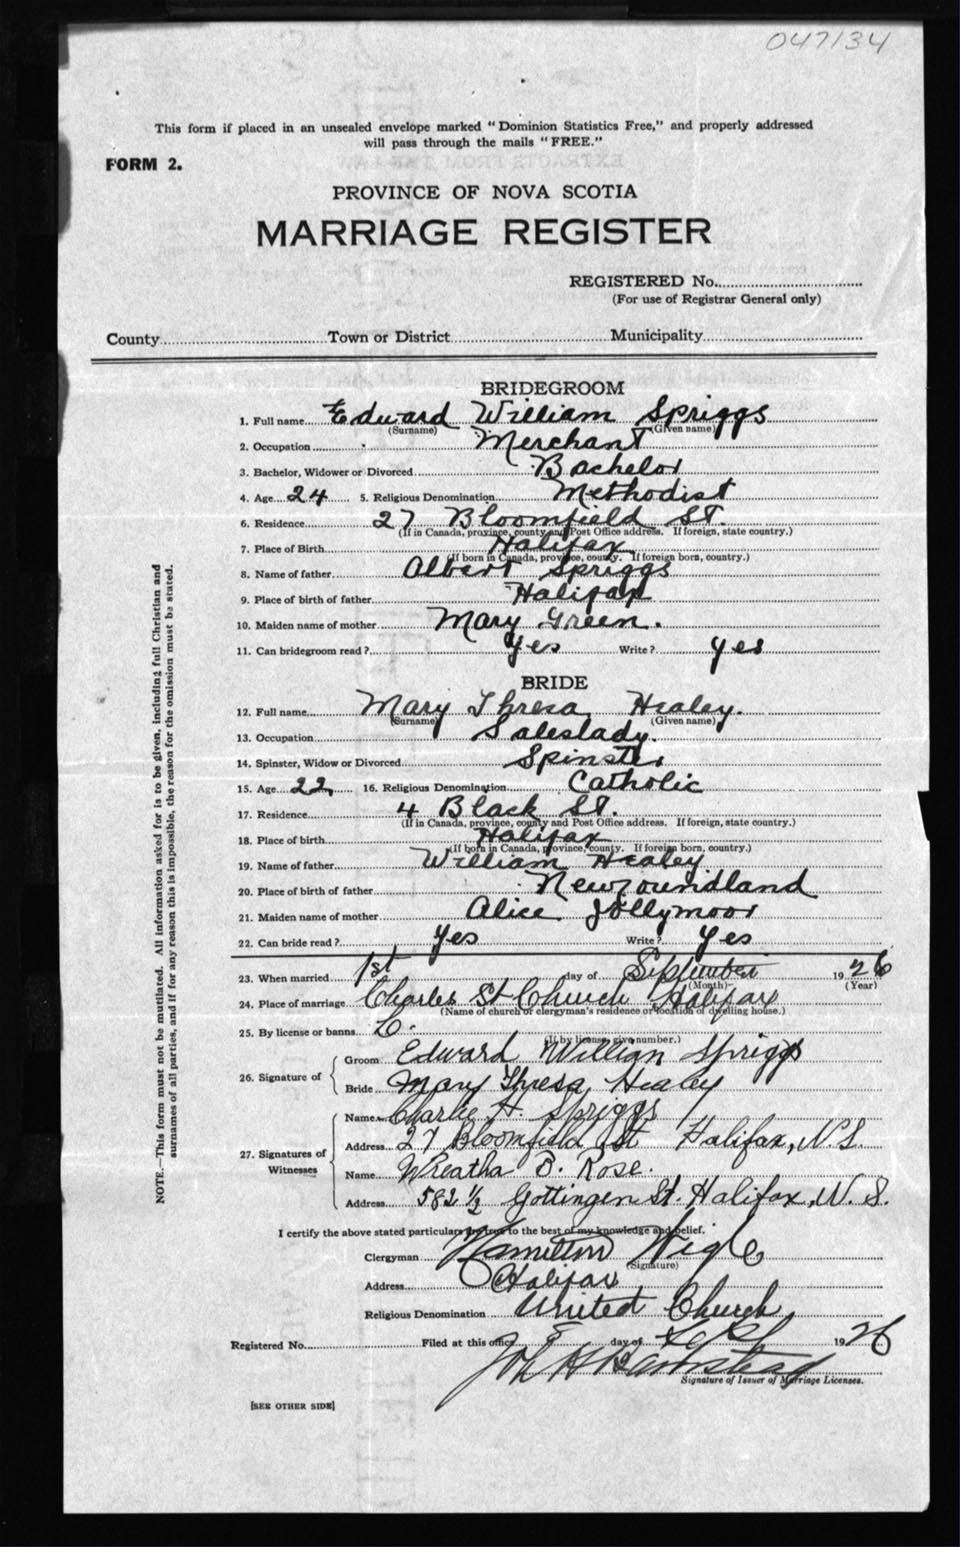 047134
This form if placed in an unsealed envelope marked "Dominion Statistics Free," and properly addressed
will pass through the mails "FREE."
FORM 2.
PROVINCE OF NOVA SCOTIA
MARRIAGE REGISTER
REGISTERED No.
(For use of Registrar General only)
County Town or District Municipality
BRIDEGROOM
1. Full name Edward William Spriggs
(Surname) (Given name)
2. Occupation Merchant
3. Bachelor, Widower or Divorced Bachelor
4. Age 24 5. Religious Denomination Methodist
6. Residence 27 Bloomfield St.
(If in Canada, province, county and Post Office address. If foreign, state country.)
7. Place of Birth Halifax
(If born in Canada, province, county. If foreign born, country.)
8. Name of father Albert Spriggs
9. Place of birth of father Halifax
10. Maiden name of mother Mary Green.
11. Can bridegroom read? Yes Write? Yes
BRIDE
12. Full name Mary Thresa Healey.
(Surname) (Given name)
13. Occupation Saleslady.
14. Spinster, Widow or Divorced Spinster
15. Age 22 16. Religious Denomination Catholic
17. Residence 4 Black St.
(If in Canada, province, county and Post Office address. If foreign, state country.)
18. Place of birth Halifax
(If born in Canada, province, county. If foreign born, country.)
19. Name of father William Healey
20. Place of birth of father Newfoundland
21. Maiden name of mother Alice Jollymoor
22. Can bride read? Yes Write? Yes
23. When married 1st day of September 1926
(Month) (Year)
24. Place of marriage Charles St Church Halifax
(Name of church or clergyman's residence or location of dwelling house.)
25. By license or banns L.
(If by license, give number.)
26. Signature of Groom Edward William Spriggs
Bride Mary Thresa Healey
27. Signatures of Witnesses Name Charlie H. Spriggs
Address 27 Bloomfield St Halifax, N.S.
Name Wreatha B. Rose.
Address 582 ½ Gottingen St. Halifax, N. S.
I certify the above stated particulars are true to the best of my knowledge and belief.
Clergyman Hamilton Wigle
(Signature)
Address Halifax
Religious Denomination United Church
Registered No. Filed at this office day of Sept 1926
Signature of Issuer of Marriage Licenses.
[SEE OTHER SIDE]
NOTE.—This form must not be mutilated. All information asked for is to be given, including full Christian and
surnames of all parties, and if for any reason this is impossible, the reason for the omission must be stated.